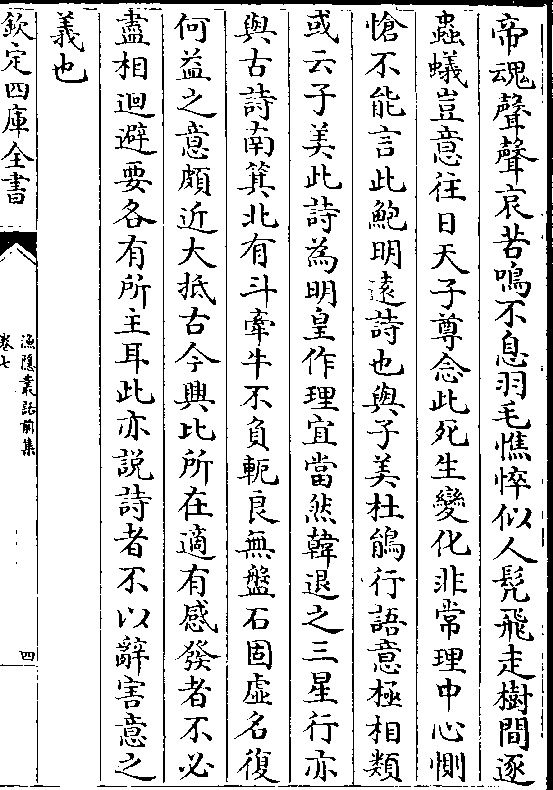 帝魂聲聲哀苦鳴不息羽毛憔悴似人髠飛走樹間逐
蟲蟻豈意往日天子尊念此死生變化非常理中心惻
愴不能言此鮑明遠詩也與子美杜鵑行語意極相類
或云子美此詩為明皇作理宜當然韓退之三星行亦
與古詩南箕北有斗牽牛不負軛良無盤石固虛名復
何益之意頗近大抵古今興比所在適有感發者不必
盡相迴避要各有所主耳此亦説詩者不以辭害意之
義也
欽定四庫全書
漁隱叢話前集
卷七
四